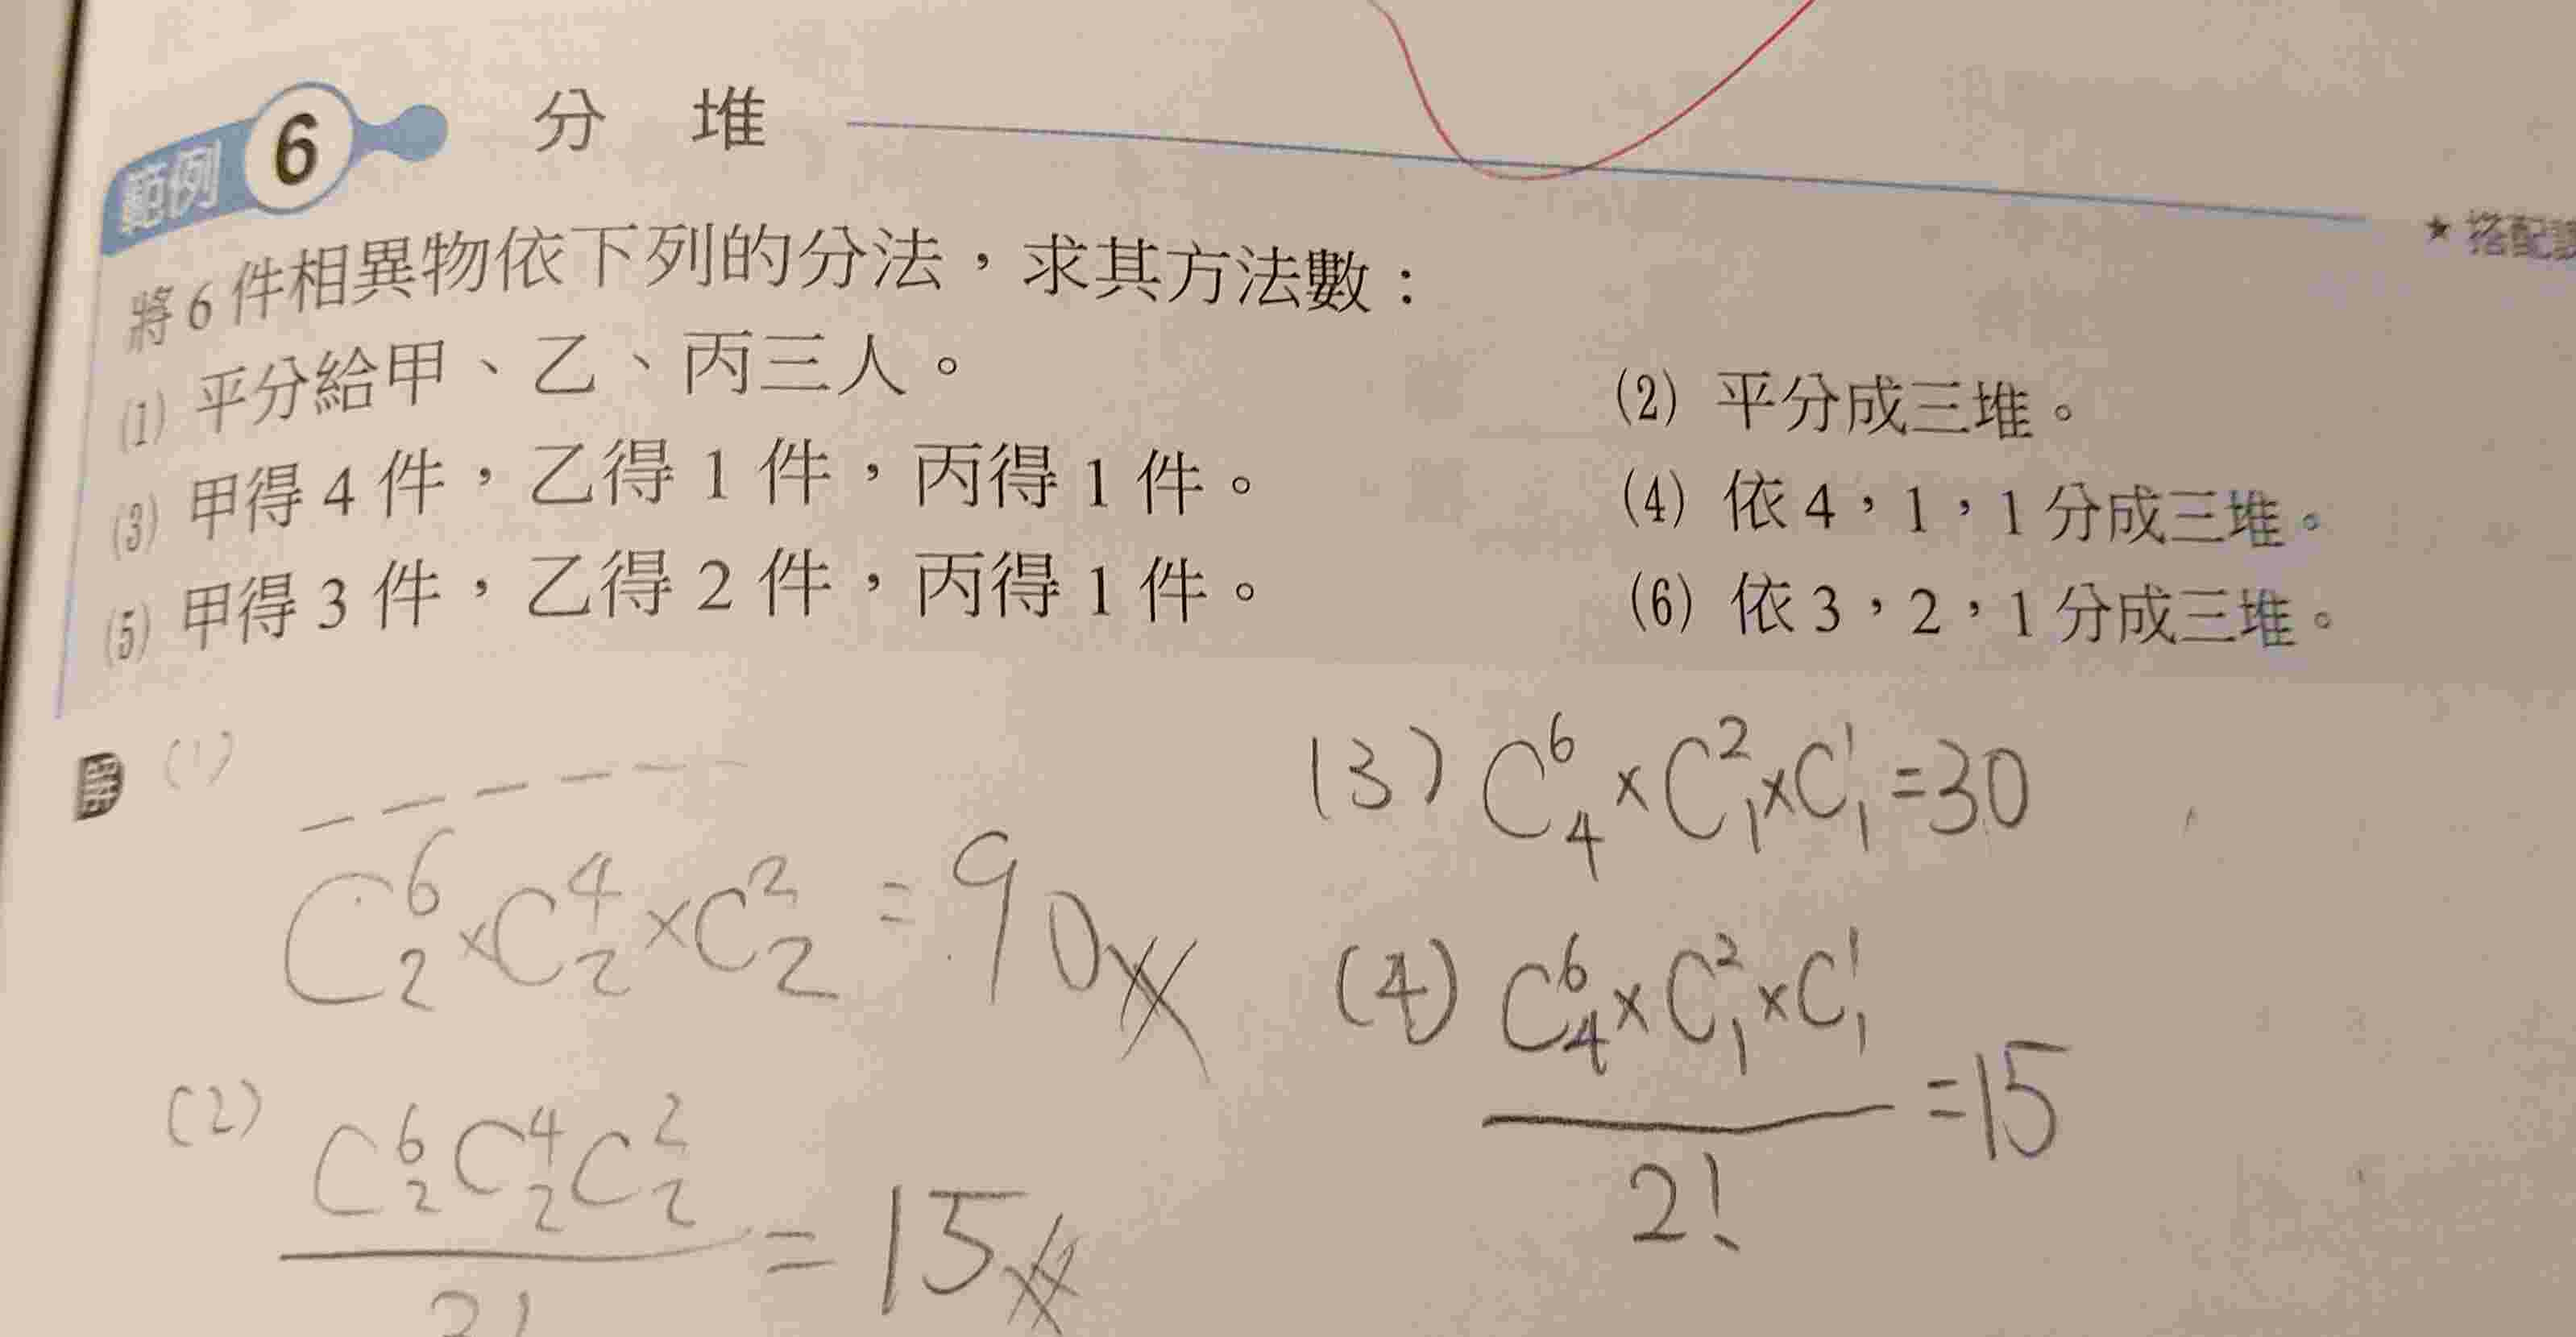 範例 6 分堆
★ 搭配
將6件相異物依下列的分法，求其方法數：
(1) 平分給甲、乙、丙三人。 (2) 平分成三堆。
(3) 甲得4件，乙得1件，丙得1件。 (4) 依4，1，1分成三堆。
(5) 甲得3件，乙得2件，丙得1件。 (6) 依3，2，1分成三堆。
(1)
C⁶₂×C⁴₂×C²₂=90
(2) C⁶₂C⁴₂C²₂
=15
(3) C⁶₄×C²₁×C¹₁=30
(4) C⁶₄×C²₁×C¹₁
=15
2!